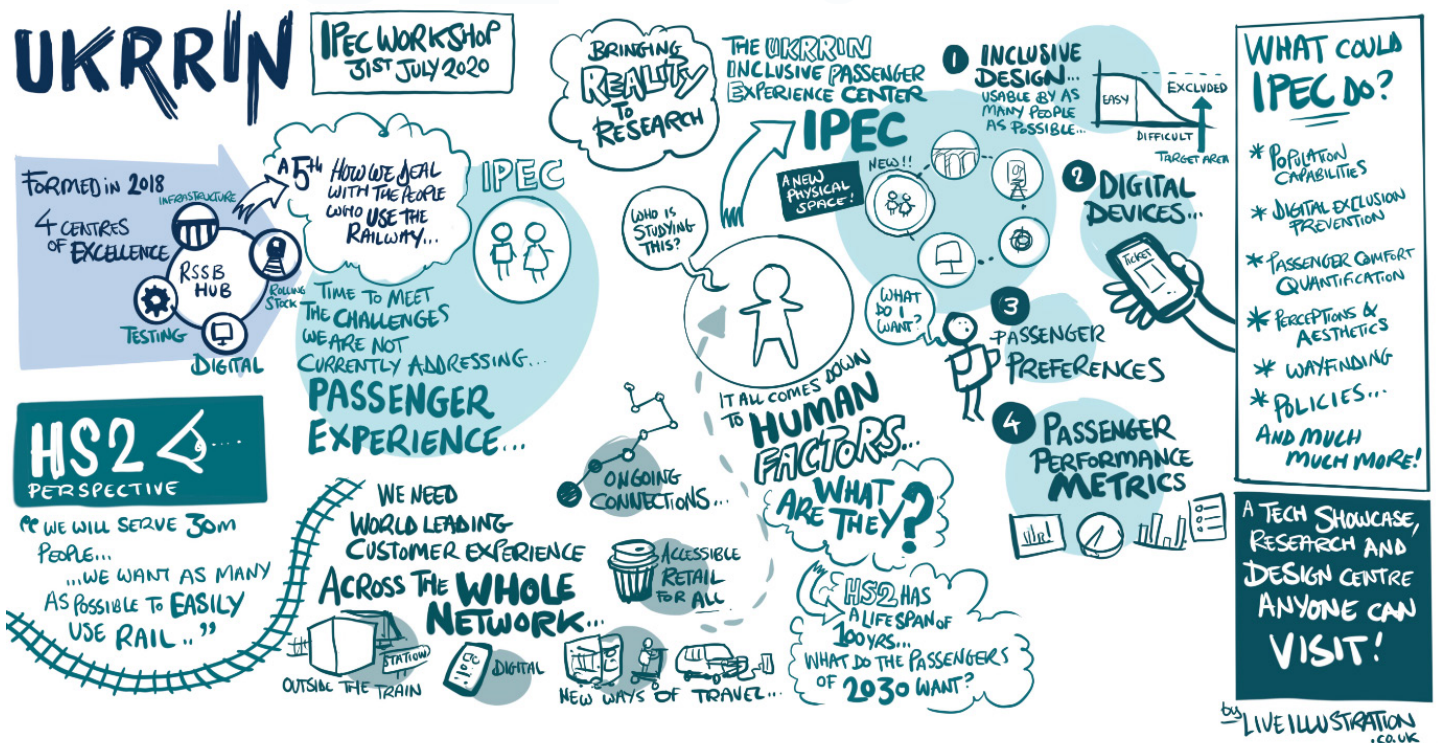 UKRRIN
IPEC WORKSHOP
31ST JULY 2020
FORMED IN 2018
4 CENTRES
OF EXCELLENCE
INFRASTRUCTURE
RSSB
HUB
ROLLING
STOCK
TESTING
DIGITAL
A 5TH
HOW WE DEAL
WITH THE PEOPLE
WHO USE THE
RAILWAY...
IPEC
TIME TO MEET
THE CHALLENGES
WE ARE NOT
CURRENTLY ADDRESSING...
PASSENGER
EXPERIENCE...
HS2
PERSPECTIVE
"WE WILL SERVE 30M
PEOPLE...
...WE WANT AS MANY
AS POSSIBLE TO EASILY
USE RAIL.."
WE NEED
WORLD LEADING
CUSTOMER EXPERIENCE
ACROSS THE WHOLE
NETWORK...
STATION
OUTSIDE THE TRAIN
DIGITAL
NEW WAYS OF TRAVEL...
ONGOING
CONNECTIONS...
ACCESSIBLE
RETAIL
FOR ALL
BRINGING
REALITY
TO
RESEARCH
WHO IS
STUDYING
THIS?
IT ALL COMES DOWN
TO HUMAN
FACTORS...
WHAT
ARE THEY?
HS2 HAS
A LIFESPAN OF
100YRS...
WHAT DO THE PASSENGERS
OF 2030 WANT?
THE UKRRIN
INCLUSIVE PASSENGER
EXPERIENCE CENTER
IPEC
A NEW
PHYSICAL
SPACE!
NEW!!
1 INCLUSIVE
DESIGN...
USABLE BY AS
MANY PEOPLE
AS POSSIBLE...
EASY
EXCLUDED
DIFFICULT
TARGET AREA
2 DIGITAL
DEVICES...
TICKET
WHAT
DO I
WANT?
3
PASSENGER
PREFERENCES
4 PASSENGER
PERFORMANCE
METRICS
WHAT COULD
IPEC DO?
* POPULATION
CAPABILITIES
* DIGITAL EXCLUSION
PREVENTION
* PASSENGER COMFORT
QUANTIFICATION
* PERCEPTIONS &
AESTHETICS
* WAYFINDING
* POLICIES...
AND MUCH
MUCH MORE!
A TECH SHOWCASE,
RESEARCH AND
DESIGN CENTRE
ANYONE CAN
VISIT!
by LIVEILLUSTRATION
.CO.UK